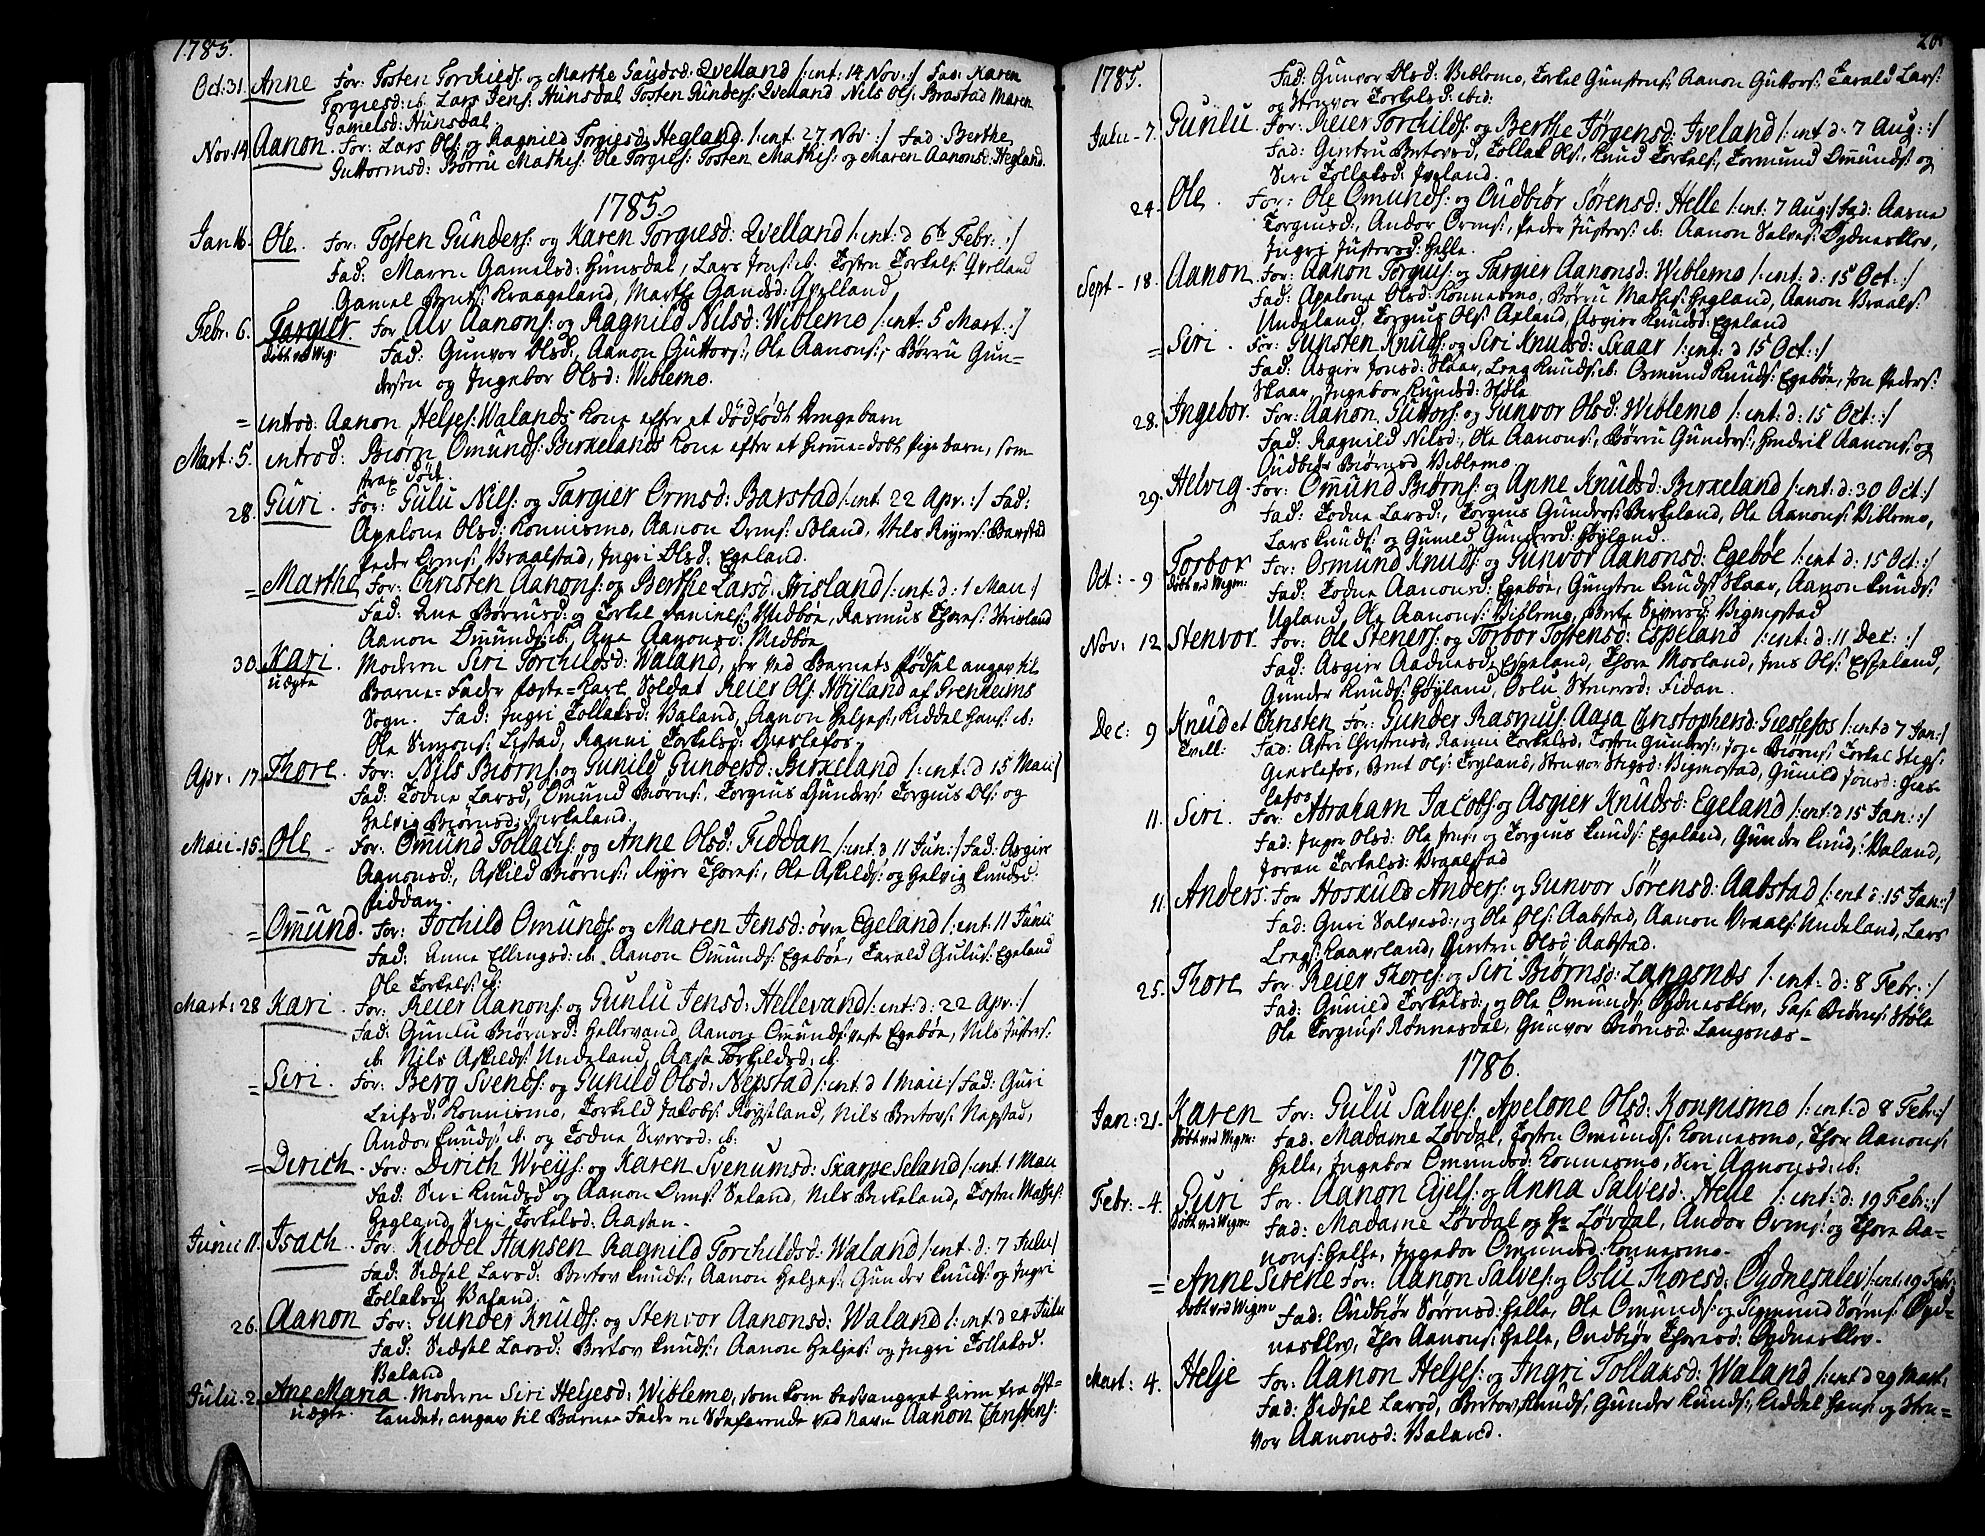 1785.
Oct: 31 Anne For: Tosten Torchilds: og Marthe Gaudsd: Qvelland /: int: 14 Nov: :/ Fad: Karen
Torgiesd: ib. Lars Jens: Hunsdal, Tosten Gunders: Qvelland Nils Ols: Brastad Maren
Gamelsd: Hunsdal.
Nov 14 Aanon. For: Lars Ols: og Ragnild Torgiesd: Hegland /: int. 27 Nov :/ Fad: Berthe
Guttormsd: Børru Mathis: Ole Torgies: Tosten Mathis: og Maren Aanonsd: Hegland.
1785
Jan 16 Ole. For: Tosten Gunders: og Karen Torgiesd: Qvelland /: int: d 6te Febr. :/
Fad: Maren Gamelsd: Hunsdal, Lars Jens: ib. Tosten Torkels: Qvelland
Gamel Bents: Kraageland, Marthe Gaudsd: Qvelland
Febr: 6. Targier. For Alv Aanons: og Ragnild Nilsd: Wiblemo /: int: 5 Mart. :/
Døbt ved Wig: Fad: Gunvor Olsd:, Aanon Guttors:, Ole Aanons:, Børru Gun=
dersen og Ingebor Olsd: Wiblemo.
= introd: Aanon Heljes: Walands Kone efter et dødfødt Drengebarn
Mart: 5. introd: Biørn Omunds: Birkelands Kone efter et hieme=døbt pigebarn, som
strax døde.
28. Guri. For: Gulu Nils: og Targier Ormsd: Barstad /: int 22 Apr. :/ Fad:
Apelone Olsd: Konnismo, Aanon Orms: Øland, Nils Reyers: Barstad
Peder Orms: Braalstad, Ingri Olsd: Egeland.
= Marthe For: Christen Aanons: og Berthe Larsd: Hrisland /: int: d: 1 Maii :/
Fad: Ane Børrusd: og Torkel Daniels: Midbøe, Rasmus Thores: Hrisland
Aanon Omunds: ib., Ane Aanonsd: Midbøe
30. Kari. Moderen Siri Torchildsd: Waland, der ved Barnets fødsel angav til
uægte Barne=Fader Løste=Karl Soldat Reier Ols: Høyland af Grenheims
Sogn. Fad: Ingri Tollaksd: Valand, Aanon Heljes:, Kiddel Hans: ib:
Ole Simons: Listad, Ranni Torkelsd: Gieslefos.
Apr: 17 Thore. For: Nils Biørns: og Gunild Gundersd: Birkeland /: int: d 15 Maii :/
Fad: Todne Larsd, Omund Biørns:, Torgius Gunders: Torgius Ols: og
Helvig Biørnsd: Birkeland.
Maii 15. Ole. For: Omund Tollachs: og Anne Olsd: Fiddan /: int d 11 Jun: :/ Fad: Asgier
Aanonsd:, Askild Biørns:, Reyer Thores:, Ole Askilds: og Helvig Knudsd:
Fiddan.
= Omund. For: Jochild Omunds: og Maren Jensd: øvre Egeland /: int. 11 Junii
Fad: Anne Ellingsd: ib. Aanon Omunds: Egebøe, Tarald Gulus: Egeland
Ole Torkels: ib:
Mart: 28 Kari. For: Reier Aanons: og Gunlu Jensd: Hellevand /: int: d: 22 Apr. :/
Fad: Gunlu Biørnsd: Hellevand, Aanon Omunds: veste Egebøe, Nils Justers:
ib. Nils Askilds: Undeland, Aase Torkildsd: ib.
= Siri. For: Berg Svends: og Gunild Olsd: Nepstad /: int: d 1 Maii :/ Fad: Guri
Leifsd: Konnismo, Torkeld Jakobs: Røyseland, Nils Bertovs: Nepstad,
Andor Knuds: ib. og Todne Siversd: ib:
= Derich. For: Derich Wreys: og Karen Svenumsd: Skarpeseland /: int. 1 Maii
Fad: Siri Knudsd og Aanon Orms: Seland, Nils Birkeland, Tosten Mathis:
Hegland, Siri Torkelsd: Aasen.
Junii 11. Isach. For: Kiddel Hansen Ragnild Torchildsd: Waland /: int: d: 7 Julii :/
Fad: Sidsel Larsd: Bertov Knuds:, Aanon Heljes: Gunder Knuds: og Ingri
Tollaksd: Valand.
26. Aanon For: Gunder Knuds: og Stenvor Aanonsd: Waland /: int: d 24 Julii
Fad: Sidsel Larsd: Bertov Knuds:, Aanon Heljes: og Ingri Tollaksd:
Valand
Julii 2. Ane Maria. Moderen Siri Heljesd: Wiblemo, som kom besvangret hiem fra Øst=
uægte. landet, angav til Barne Fader en Søefarende ved navn Aanon Christens:
1785.
Fad: Gunvor Olsd: Viblemo, Torkel Gunstens: Aanon Guttors:, Tarald Lars:
og Stenvor Torkelsd: ibid:
Julii - 7. Gunlu. For: Reier Torchilds: og Berthe Jørgensd: Iveland /: int: d: 7 Aug: :/
Fad: Giertru Bertovsd, Tollak Ols:, Knud Torkels:, Tormund Omunds: og
Siri Tollaksd: Iveland.
24. Ole. For: Ole Omunds: og Oudbiør Sørensd: Helle /: int: 7 Aug: :/ Fad: Aasne
Torgiusd:, Andor Orms:, Peder Justers: ib: Aanon Salves: Øydneskløv,
Ingri Justersd: Helle.
Sept - 18. Aanon. For: Aanon Torgius: og Targier Aanonsd: Wiblemo /: int: d: 15 Oct: :/
Fad: Apelone Olsd: Konnesmo, Børru Mathis: Hegland, Aanon Braals:
Undeland, Torgius Ols: Øxland, Asgier Knudsd: Egeland
= Siri. For: Gunsten Knuds: og Siri Knudsd: Skaar /: int: d 15 Oct: :/
Fad: Asgier Jonsd: Skaar, Long Knuds: ib. Osmund Knuds: Egebøe, Jon Peders:
Skaar, Ingebor Knudsd: Støle
28. Ingebor. For: Aanon Guttors: og Gunvor Olsd: Wiblemo /: int: d: 15 Oct: :/
Fad: Ragnild Nilsd:, Ole Aanons:, Børru Gunders:, Hendrik Aanons: og
Oudbiør Biørnsd Viblemo.
29. Helvig. For: Omund Biørns: og Anne Knudsd: Birkeland /: int: d: 30 Oct: :/
Fad: Todne Larsd:, Torgius Gunders: Birkeland, Ole Aanons: Viblemo,
Lars Knuds: og Gunild Gundersd: Høyland.
Oct: - 9 Torbor For: Osmund Knuds: og Gunvor Aanonsd: Egebøe /: int d: 15 Oct: :/
Døbt ved Wigm: Fad: Todne Aanonsd: Egebøe, Gunsten Knuds: Skaar, Aanon Knuds:
Ugland, Ole Aanons: Viblemo, Berte Siversd: Vigmostad
Nov: 12 Stenvor. For: Ole Steners: og Torbor Tostensd: Espeland /: int: d: 11 Dec: :/
Fad: Asgier Aadnesd: Espeland, Thore Morland, Jens Ols: Espeland,
Gunder Knuds: Høyland, Oslu Stenersd: Fidan.
Dec: 9 Knud et Christen For: Gunder Rasmus: Aasa Christophersd: Gieslefos /: int d 7 Jan: :/
Tvill: Fad: Astri Christensd, Ranni Torkelsd, Tosten Gunders:, Jon Biørns:, Torkel Stigs:
Gieslefos, Brut Ols: Tryland, Stenvor Stigsd: Vigmostad, Gunild Jonsd: Gies=
lefos.
11. Siri. For: Abraham Jacobs: og Asgier Knudsd: Egeland /: int: d 15 Jan: :/
Fad: Inger Olsd: Ole Jens:, og Torgius Knuds: Egeland, Gunder Knuds: Valand,
Joran Torkelsd: Braalstad
11. Anders. For Hoskuld Anders: og Gunvor Sørensd: Aabstad /: int d: 15 Jan: :/
Fad: Guri Salvesd:, og Ole Ols: Aabstad, Aanon Braals: Undeland, Lars
Longs: Kaaveland, Giertru Olsd Aabstad.
25. Thore For Reier Thores: og Siri Biørnsd: Langsnæs /: int: d: 8 Febr. :/
Fad: Gunild Torkelsd, og Ole Omunds: Øydneskløv, Gase Biørns: Støle
Ole Torgius: Rønnesdal, Gunvor Biørnsd: Langsnæs -
1786.
Jan: 21. Karen For: Gulu Salves: Apelone Olsd: Konnismo /: int: d 8 Febr: :/
Døbt ved Wigm: Fad: Madame Løvdal, Tosten Omunds: Konnesmo, Thor Aanons:
Helle, Ingebor Omundsd: Konnesmo, Siri Aanonsd: ib:
Febr: - 4. Guri For. Aanon Eyels: og Anna Salvesd: Helle /: int: d: 19 Febr: :/
Døbt ved Wigm: Fad: Madame Løvdal og Hr Løvdal, Andor Orms: og Thore Aa=
nons: Helle, Ingebor Omundsd: Konnesmo.
= Anne Sirene For: Aanon Salves: og Oslu Thoresd: Øydneskløv /: int: 19 Febr:
Døbt ved Wigm: Fad: Oudbiør Sørensd: Helle, Ole Omunds: og Sigmund Sørens: Øyd=
neskløv, Thor Aanons: Helle, Oudbiør Thoresd: Øydneskløv.
Mart: 4. Helje For: Aanon Heljes: og Ingri Tollaksd: Waland /: int d 29 Mart.
Fad: Sidsel Larsd, Bertov Knuds, Gunder Knuds:, Kiddel Hans: og Sten=
vor Aanonsd: Valand.